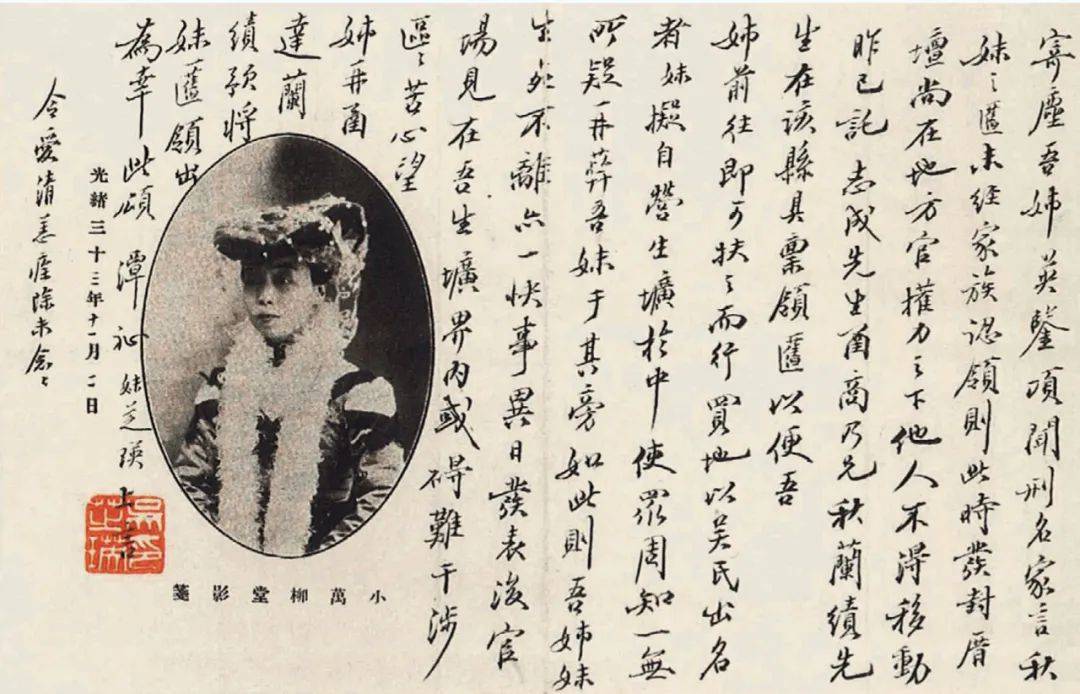 寄塵吾姊英鑒頃聞刑名家言秋
妹之匶未經家族認領則此時發封厝
壇尚在地方官權力之下他人不得移動
昨已託 志成先生函商乃兄秋蘭績先
生在該縣具稟領匶以便吾
姊前往即可扶之而行買地以吳氏出名
者妹擬自營生壙於中使眾周知一無
所疑再葬吾妹于其旁如此則吾姊妹
生死不離亦一快事異日發表後官
場見在吾生壙界內或碍難干涉
區區苦心望
姊再函
達蘭
績預將
妹匶領出
為幸此頌 潭祉 妹芝瑛上言
光緒三十三年十一月二日
令愛清恙痊除未念念
吳印芝瑛
小萬柳堂影箋